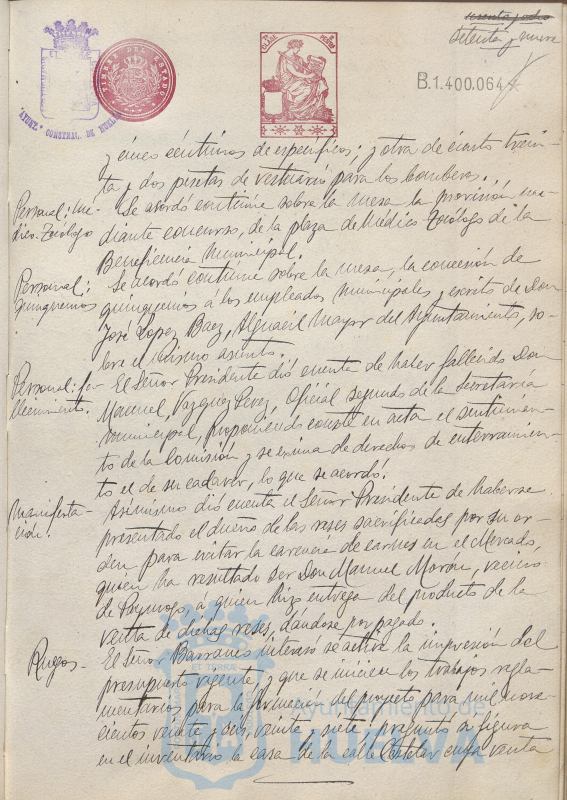 sesenta y ocho
setenta y nueve
B.1.400.064
CLASE
TIMBRE DEL ESTADO
AYUNT.º CONSTNAL. DE HUEL
y cinco céntimos de específicos; y otra de ciento trein-
ta y dos pesetas de vestuario para los bomberos.
Personal: Mé-
dico-Tocólogo
Se acordó continúe sobre la mesa la provisión me-
diante concurso, de la plaza de Médico Tocólogo de la
Beneficencia Municipal.
Personal:
quinquenios
Se acordó continúe sobre la mesa, la concesión de
quinquenios á los empleados municipales y escrito de Don
José Lopez Baez, Alguacil Mayor del Ayuntamiento, so-
bre el mismo asunto.
Personal: fa-
llecimiento.
El Señor Presidente dió cuenta de haber fallecido Don
Manuel Vazquez Perez, Oficial segundo de la Secretaría
municipal, proponiendo conste en acta el sentimien-
to de la Comisión y se exima de derechos de enterramien-
to el de su cadaver, lo que se acordó.
Manifesta-
ción.
Asimismo dió cuenta el Señor Presidente de haberse
presentado el dueño de las reses sacrificadas por su or-
den para evitar la carencia de carnes en el Mercado
quien ha resultado ser Don Manuel Morón, vecino
de á quien hizo entrega del producto de la
venta de dichas reses, dándose por pagado.
Ruegos-
El Señor Barranco interesó se active la impresión del
presupuesto vigente y que se inicien los trabajos regla-
mentarios para la formación del proyecto para mil nove-
cientos veinte y seis, veinte y siete, preguntó si figura
en el inventario la casa de la calle Castelar cuya venta
Ayuntamiento de
HUELVA